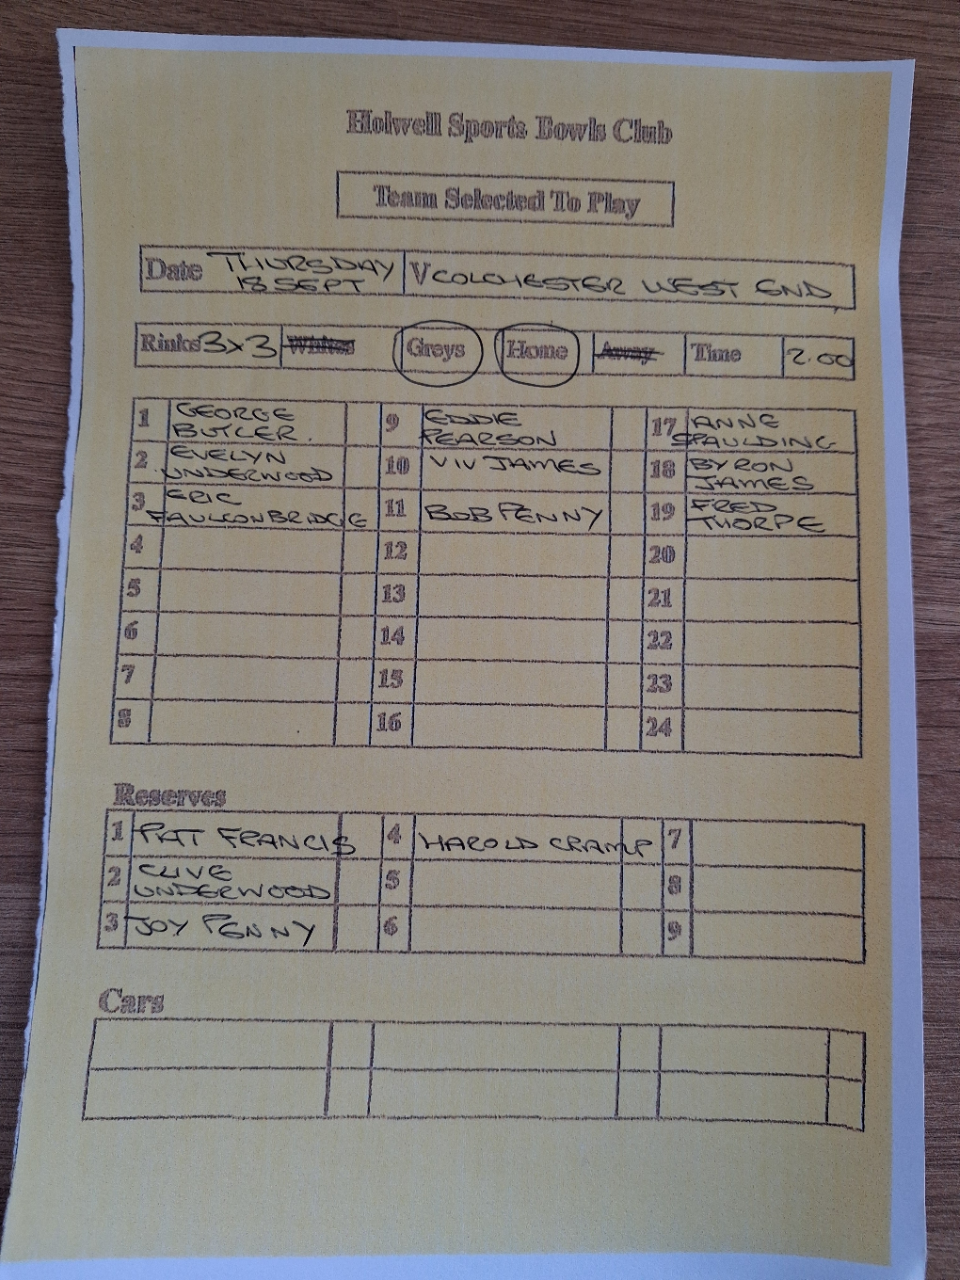 Holwell Sports Bowls Club
Team Selected To Play
Date THURSDAY 18 SEPT V COLCHESTER WEST END
Rinks 3x3 Whites Greys Home Away Time 2.00
1 GEORGE BUTLER. 9 EDDIE PEARSON 17 ANNE SPAULDING
2 EVELYN UNDERWOOD 10 VIV JAMES 18 BYRON JAMES
3 ERIC FAULCONBRIDGE 11 BOB PENNY 19 FRED THORPE
4 12 20
5 13 21
6 14 22
7 15 23
8 16 24
Reserves
1 PAT FRANCIS 4 HAROLD CRAMP 7
2 CLIVE UNDERWOOD 5 8
3 JOY PENNY 6 9
Cars